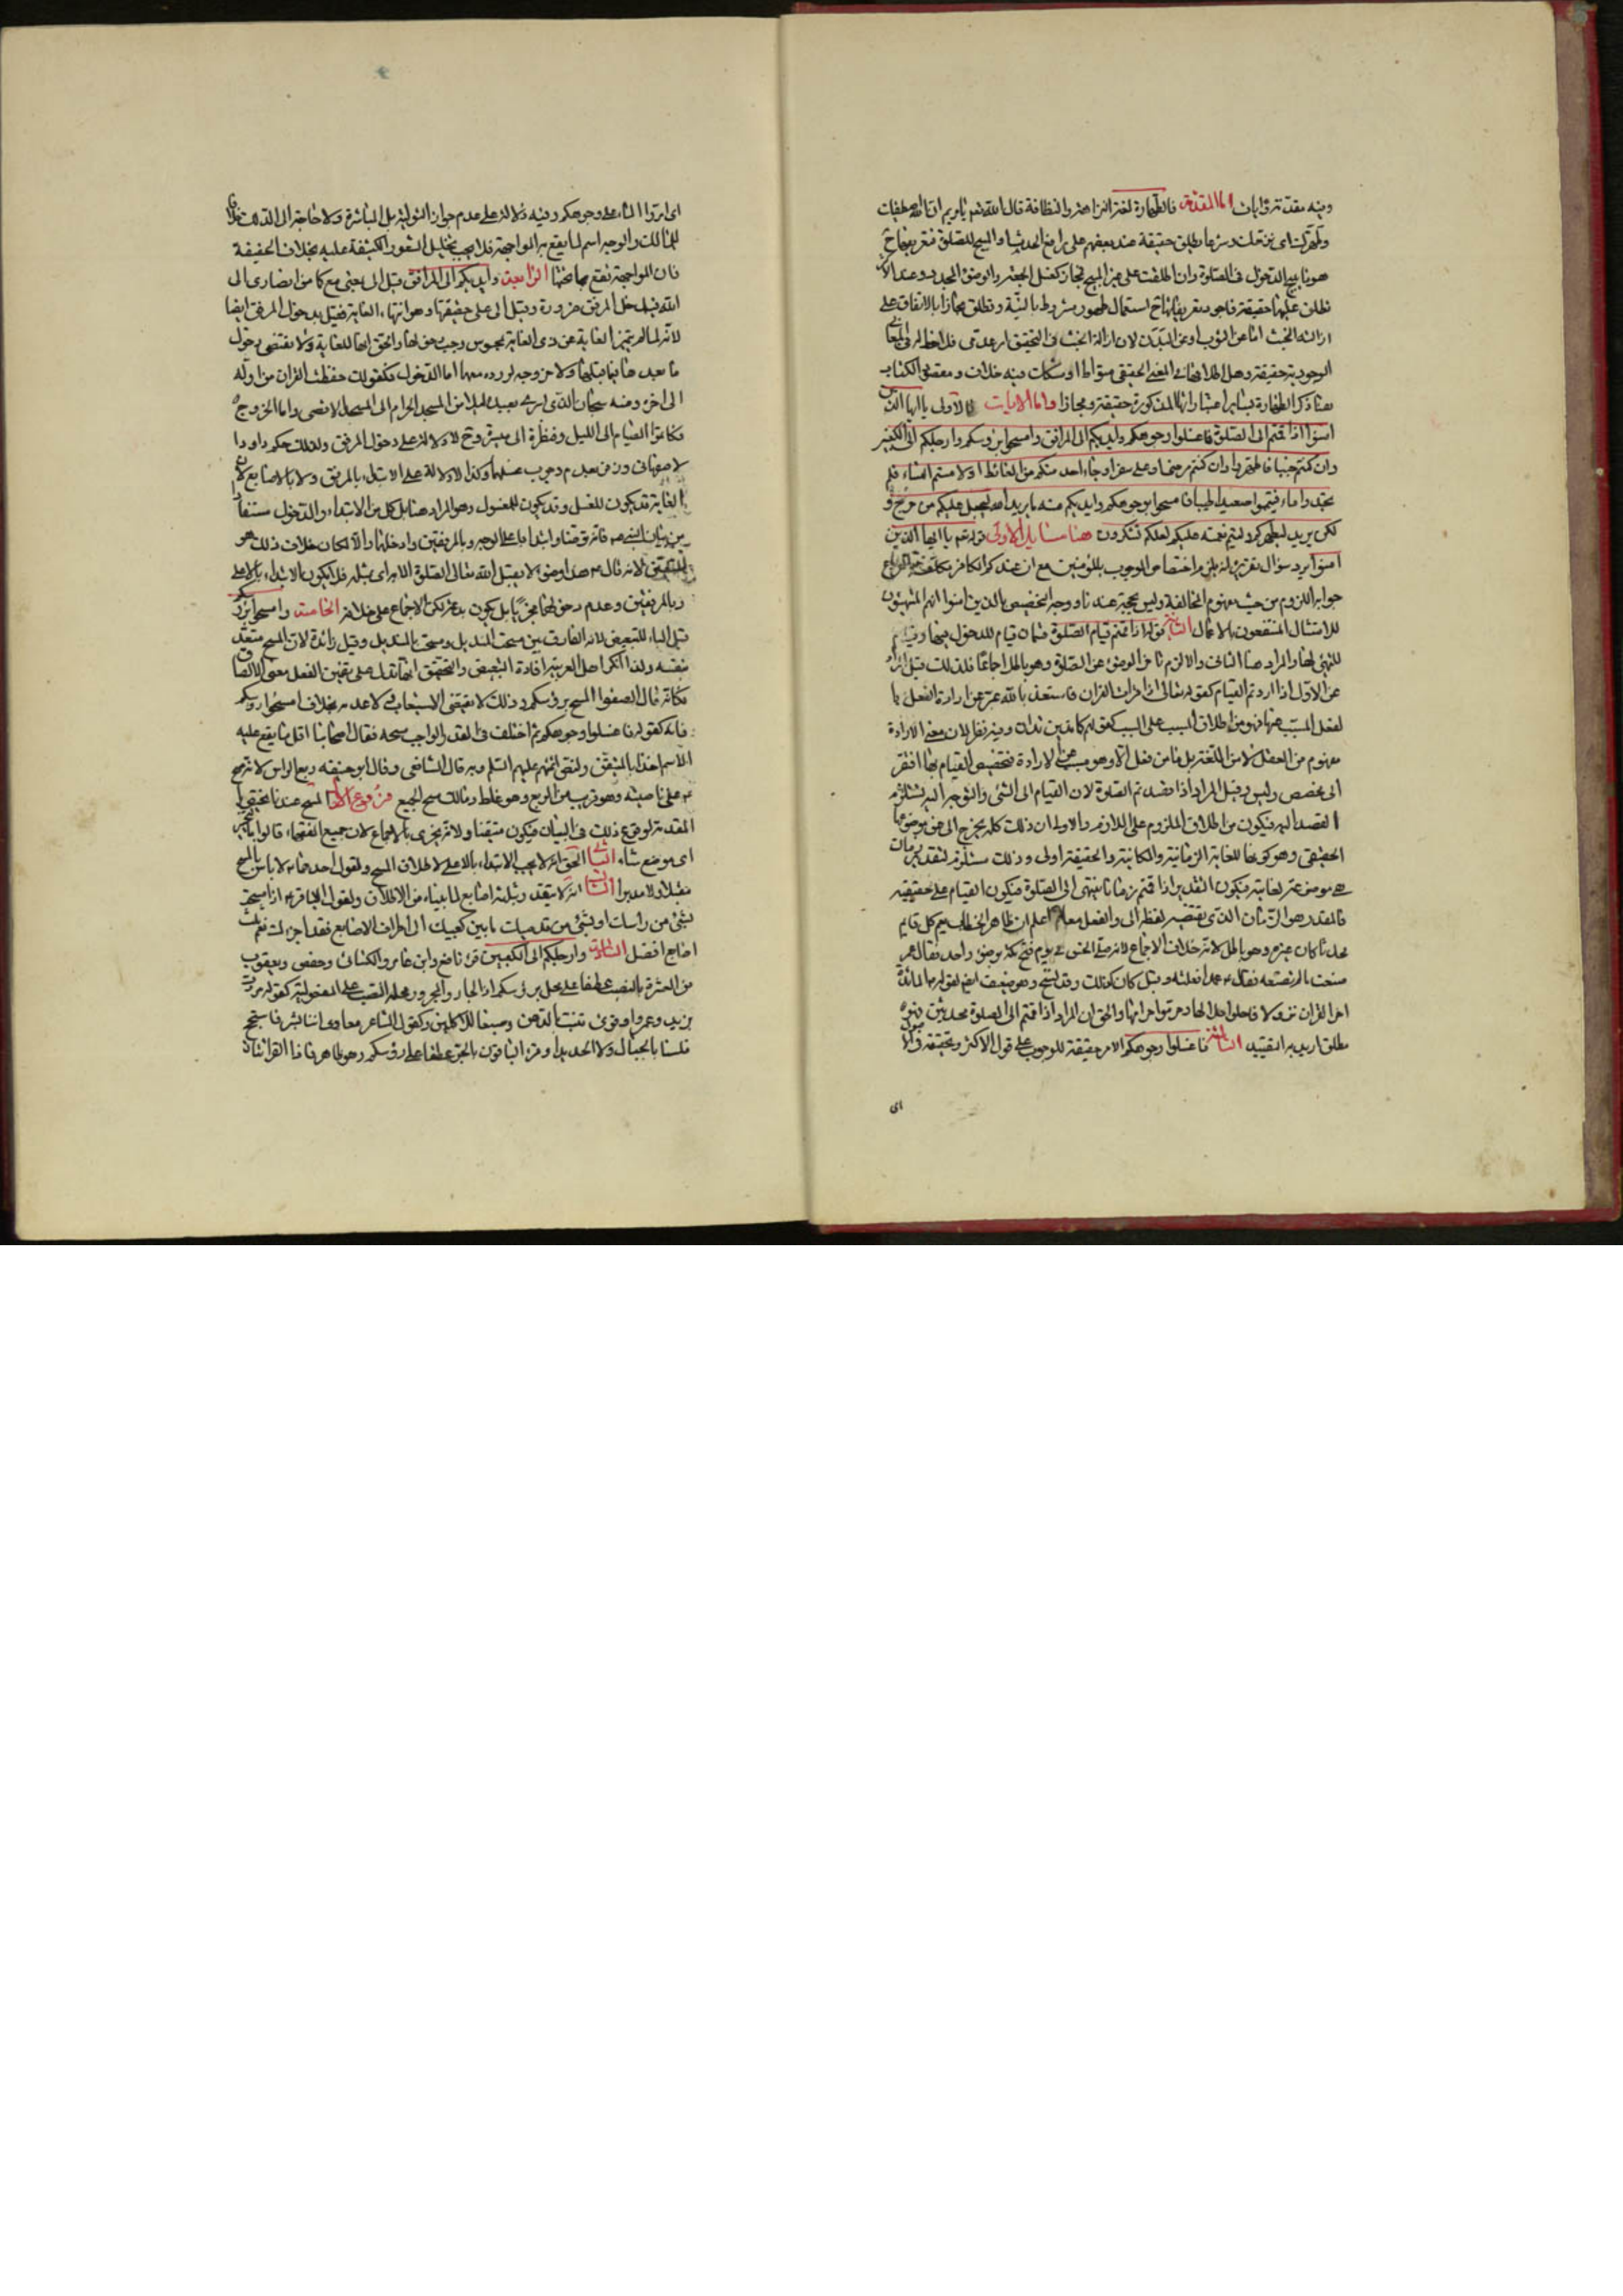 وفيه مقدمة وايات اما المقدمة فالطهارة لغة النزاهة والنظافة قال الله تعم يا مريم ان الله اصطفيك
وطهرك اى نزهك وشرعا يطلق حقيقة عند بعضهم على رافع الحدث او المبيح للصلوة فتعريفها ح
هو ما يبيح الدخول فى الصلوة وان اطلقت على غير المبيح فمجاز كغسل الجمعة والوضوء المجدد وعند الاكثر
تطلق عليها حقيقة فاجود تعريفاتها ح استعمال طهور مشروط بالنية وتطلق مجازا بالاتفاق على
ازالة الخبث اما عن الثوب او عن البدن لان ازالة الخبث فى التحقيق امر عدمى فلا حظ له فى المعانى
الوجودية حقيقة وهل اطلاقها على المعنى الحقيقى متواطئا او مشكك فيه خلاف ومقصد الكتاب
هنا ذكر الطهارة بسائر اعتباراتها المذكورة حقيقة ومجازا واما الايات فالاولى يا ايها الذين
امنوا اذا قمتم الى الصلوة فاغسلوا وجوهكم وايديكم الى المرافق وامسحوا برؤسكم وارجلكم الى الكعبين
وان كنتم جنبا فاطهروا وان كنتم مرضى او على سفر او جاء احد منكم من الغائط او لامستم النساء فلم
تجدوا ماء فتيمموا صعيدا طيبا فامسحوا بوجوهكم وايديكم منه ما يريد الله ليجعل عليكم من حرج و
لكن يريد ليطهركم وليتم نعمته عليكم لعلكم تشكرون هنا مسايل الاولى قوله تعم يا ايها الذين
امنوا يرد سؤال تقريره انه يلزم اختصاص الوجوب بالمؤمنين مع ان عندكم الكافر مكلف بالفروع
جوابه اللزوم من حيث مفهوم المخالفة وليس بحجة عندنا ووجه التخصيص بالذين امنوا انهم المتهيئون
للامتثال المنتفعون بالاعمال الثانية قوله اذا قمتم قيام الصلوة قسمان قيام للدخول فيها وقيام
للتهيئ لها والمراد هنا الثانى والا لزم تاخر الوضوء عن الصلوة وهو باطل اجماعا فلذلك قيل اراد
عن الاول اذا اردتم القيام كقوله تعالى اذا قرات القران فاستعذ بالله عبر عن ارادة الفعل با
لفعل المسبب عنها فهو من اطلاق المسبب على السبب كقولهم كما تدين تدان وفيه نظر لان معنى الارادة
مفهوم من العقل لا من اللغة
الى مخصص وليس وقيل المراد اذا قصدتم الصلوة لان القيام الى الشئ والتوجه اليه يستلزم
القصد اليه فيكون من اطلاق الملزوم على اللازم والاولى ان ذلك كله يخرج الى عن موضوعها
الحقيقى وهو كونها للغاية الزمانية والمكانية والحقيقة اولى وذلك مستلزم لتقدير زمان
فيكون التقدير اذا قمتم زمانا ينتهى الى الصلوة فيكون القيام على حقيقته
فالمقدر هو الزمان الذى يقتضيه لفظة الى والفعل معا اعلم ان ظاهر الخطاب يعم كل قايم
محدثا كان او غيره وهو باطل لانه خلاف الاجماع لانه صلى الخمس يوم فتح مكة بوضوء واحد فقال عمر
صنعت ما لم تصنعه فقال عمدا فعلته وقيل كان كذلك وقد نسخ وهو ضعيف ايضا لقوله المائدة
اخر القران نزولا فاحلوا حلالها وحرموا حرامها والحق ان المراد اذا قمتم الى الصلوة محدثين فهو
مطلق اريد به التقييد الثالثة فاغسلوا وجوهكم الامر حقيقة للوجوب على قول الاكثر وتحقيقه فى الاصول
اى
اى امروا الماء على وجوهكم وفيه دلالة على عدم جواز التولية بل المباشرة ولا حاجة الى الدلك خلافا
لمالك والوجه اسم لما يقع به المواجهة فلا يجب تخليل الشعور الكثيفة عليه بخلاف الخفيفة
فان المواجهة تقع بما تحتها الرابعة وايديكم الى المرافق قيل الى بمعنى مع كما من انصارى الى
الله فيدخل المرفق ضرورة وقيل الى على حقيقتها وهو انتهاء الغاية فقيل بدخول المرفق ايضا
لانه لما لم يتميز الغاية عن ذى الغاية بمحسوس وجب دخولها والحق انها للغاية ولا يقتضى دخول
ما بعدها فيما قبلها ولا خروجه لوروده معهما اما الدخول فكقولك حفظت القران من اوله
الى اخره ومنه سبحان الذى اسرى بعبده ليلا من المسجد الحرام الى المسجد الاقصى واما الخروج
فكاتموا الصيام الى الليل وفنظرة الى ميسرة وح لا دلالة على دخول المرفق ولذلك حكم داود
الاصفهانى وزفر بعدم وجوب غسلهما وكذا لا دلالة على الابتداء بالمرفق ولا بالاصابع لان
الغاية قد يكون للغسل وقد يكون للمغسول وهو المراد هنا بل كل من الابتداء والدخول مستفاد
من بيان النبى فانه توضا وابتدا باعلى الوجه وبالمرفقين وادخلهما والا لكان خلاف ذلك هو
المتعين لانه قال هذا وضوء لا يقبل الله تعالى الصلوة الا به اى بمثله فلا يكون الابتداء بالاعلى
وبالمرفقين وعدم دخولهما مجزيا بل يكون بدعة لكن الاجماع على خلافه الخامسة وامسحوا برؤسكم
قيل الباء للتبعيض لانه الفارق بين مسحت المنديل ومسحت بالمنديل وقيل زائدة لان المسح متعد
بنفسه ولذا انكر اهل العربية افادة التبعيض والتحقيق انها تدل على تضمين الفعل معنى الالصاق
فكانه قال الصقوا المسح برؤسكم وذلك لا يقتضى الاستيعاب ولا عدمه بخلاف امسحوا رؤسكم
فانه كقوله فاغسلوا وجوهكم ثم اختلف فى القدر الواجب مسحه فقال اصحابنا اقل ما يقع عليه
الاسم اخذا بالمتيقن ولنص ائمتهم عليهم السلم وبه قال الشافعى وقال ابو حنيفه ربع الراس لانه مسح
على ناصيته وهو قريب من الربع وهو غلط ومالك مسح الجميع فروع الاول المسح عندنا يختص با
لمقدم لوقوع ذلك فى البيان فيكون متيقنا ولانه يجزى بالاجماع لان جميع الفقهاء قالوا
اى موضع شاء الثانى الحق انه لا يجب الابتداء بالاعلى لاطلاق المسح ولقول احدهما لا باس بالمسح
مقبلا ومدبرا الثالث انه لا يتقدر بثلث اصابع لما بيناه من الاطلاق ولقول الباقر اذا مسحت
بشئ من راسك او بشئ من قدميك ما بين كعبيك الى اطراف الاصابع فقد اجزاك نعم بثلث
اصابع افضل السادسة وارجلكم الى الكعبين قرئ نافع وابن عامر والكسائى وحفص ويعقوب
من العشرة بالنصب عطفا على محل برؤسكم اذ الجار والمجرور محله النصب على المفعولية كقولهم مررت
بزيد وعمروا وقرئ تنبت بالدهن وصبغا للاكلين وكقول الشاعر معاوى اننا بشر فاسجح
فلسنا بالجبال ولا الحديدا وقرء الباقون بالجر عطفا على رؤسكم وهو ظاهر فاذا القرائتان